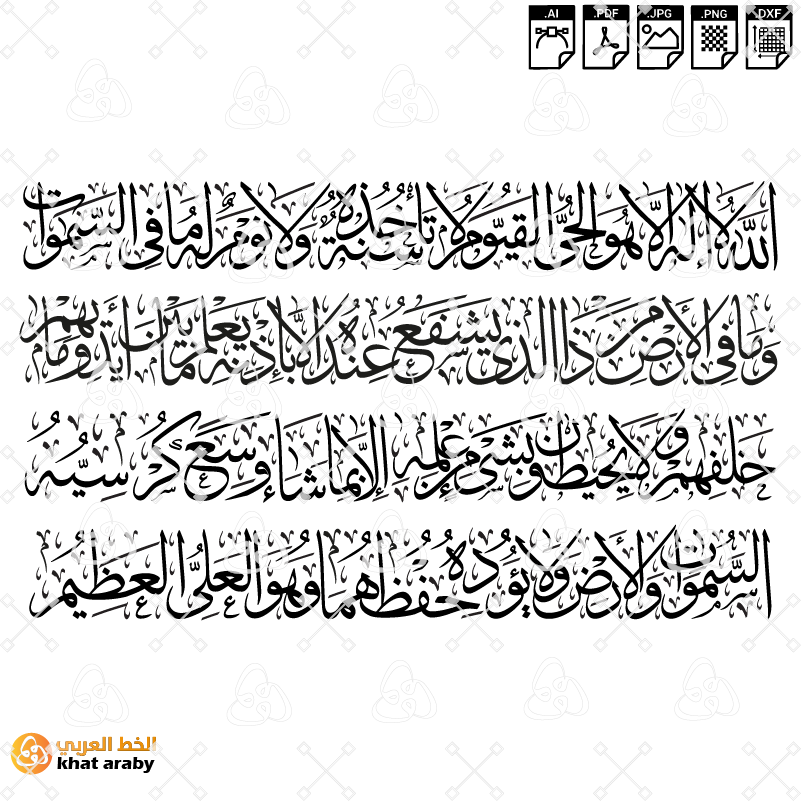 .AI .PDF .JPG .PNG .DXF
الله لا إله إلا هو الحي القيوم لا تأخذه سنة ولا نوم له ما في السموات
وما في الأرض من ذا الذي يشفع عنده إلا بإذنه يعلم ما بين أيديهم وما
خلفهم ولا يحيطون بشيء من علمه إلا بما شاء وسع كرسيه
السموات والأرض ولا يؤده حفظهما وهو العلي العظيم
الخط العربي
khat araby